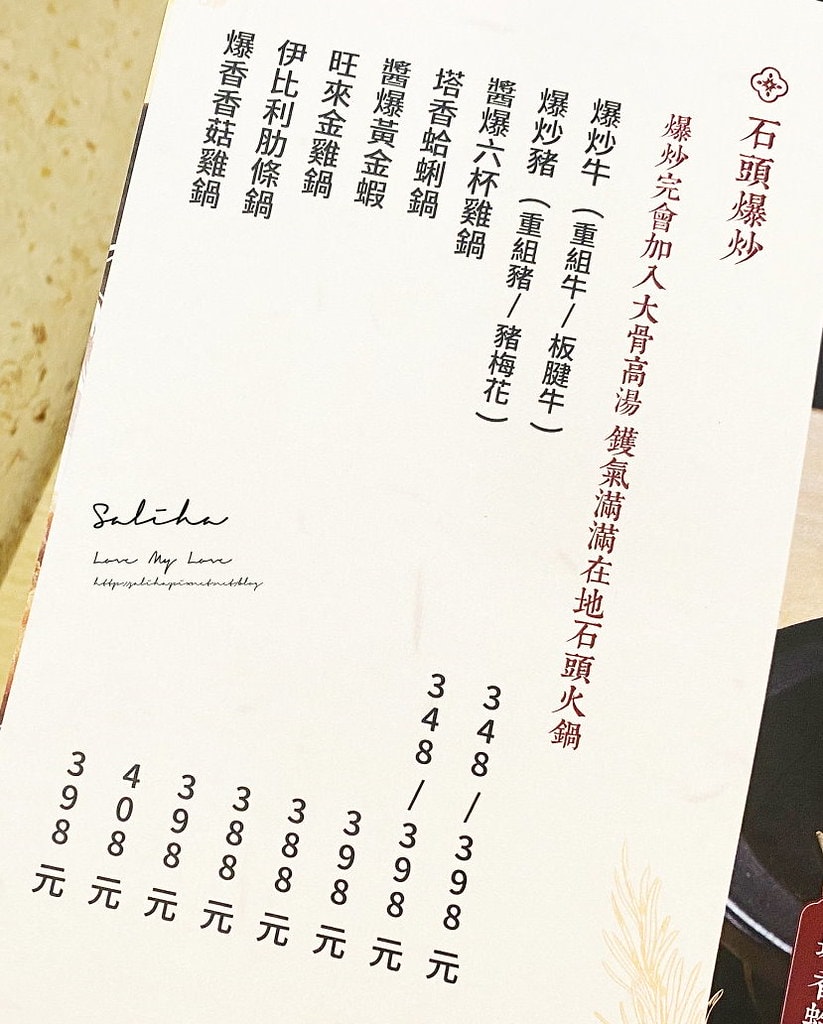 石頭爆炒
爆炒完會加入大骨高湯 鑊氣滿滿在地石頭火鍋
爆炒牛(重組牛/板腱牛) 348/398元
爆炒豬(重組豬/豬梅花) 348/398元
醬爆六杯雞鍋 398元
塔香蛤蜊鍋 388元
醬爆黃金蝦 388元
旺來金雞鍋 398元
伊比利肋條鍋 408元
爆香香菇雞鍋 398元
Saliha
Love My Love
http://saliha.pixnet.net/blog
香